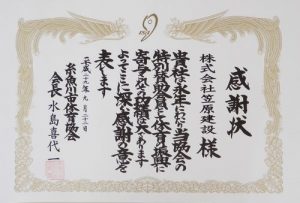 感謝状
株式会社笠原建設 様
貴社は永年にわたり当協会の
特別賛助会員として体育振興に
寄与された功績は大であります
よってここに深く感謝の意を
表します
平成二十九年九月二十二日
糸魚川市体育協会
会長 水島喜代一